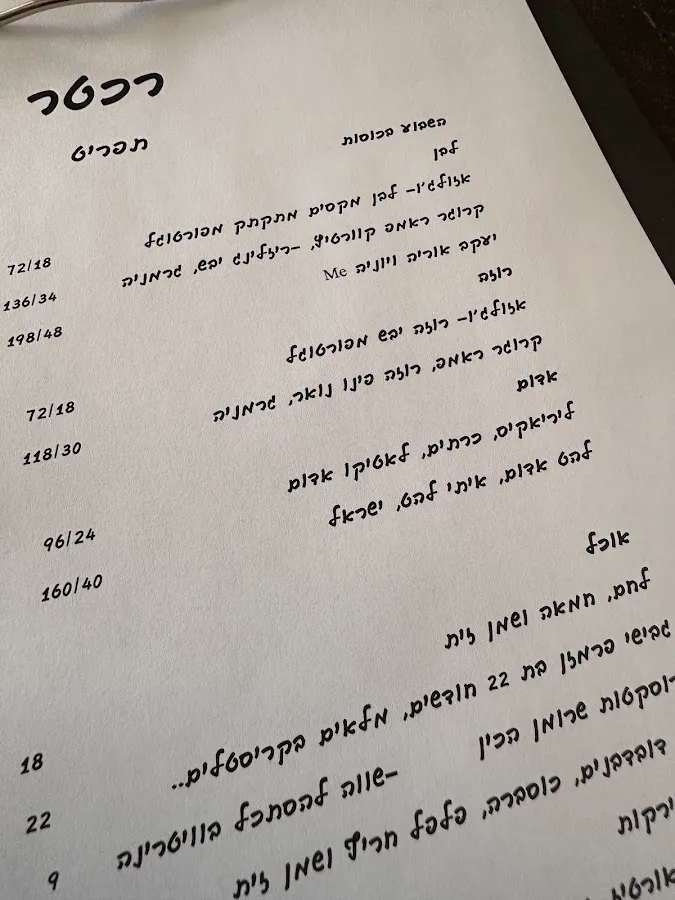 רכטר
תפריט
השבוע בכוסות
לבן
אזולג'ו– לבן מקסים מתקתק מפורטוגל 72/18
קרוגר ראמפ קוורטיף, –ריזלינג יבש, גרמניה 136/34
יעקב אוריה ויוניה Me 198/48
רוזה
אזולג'ו– רוזה יבש מפורטוגל 72/18
קרוגר ראמפ, רוזה פינו נואר, גרמניה 118/30
אדום
ליריאקיס, כרתים, לאטיקו אדום 96/24
להט אדום, איתי להט, ישראל 160/40
אוכל
לחם, חמאה ושמן זית 18
גבישי פרמזן בת 22 חודשים, מלאים בקריסטלים.. 22
שרומן הכין –שווה להסתכל בוויטרינה 9
דובדבנים, כוסברה, פלפל חריף ושמן זית
ירקות